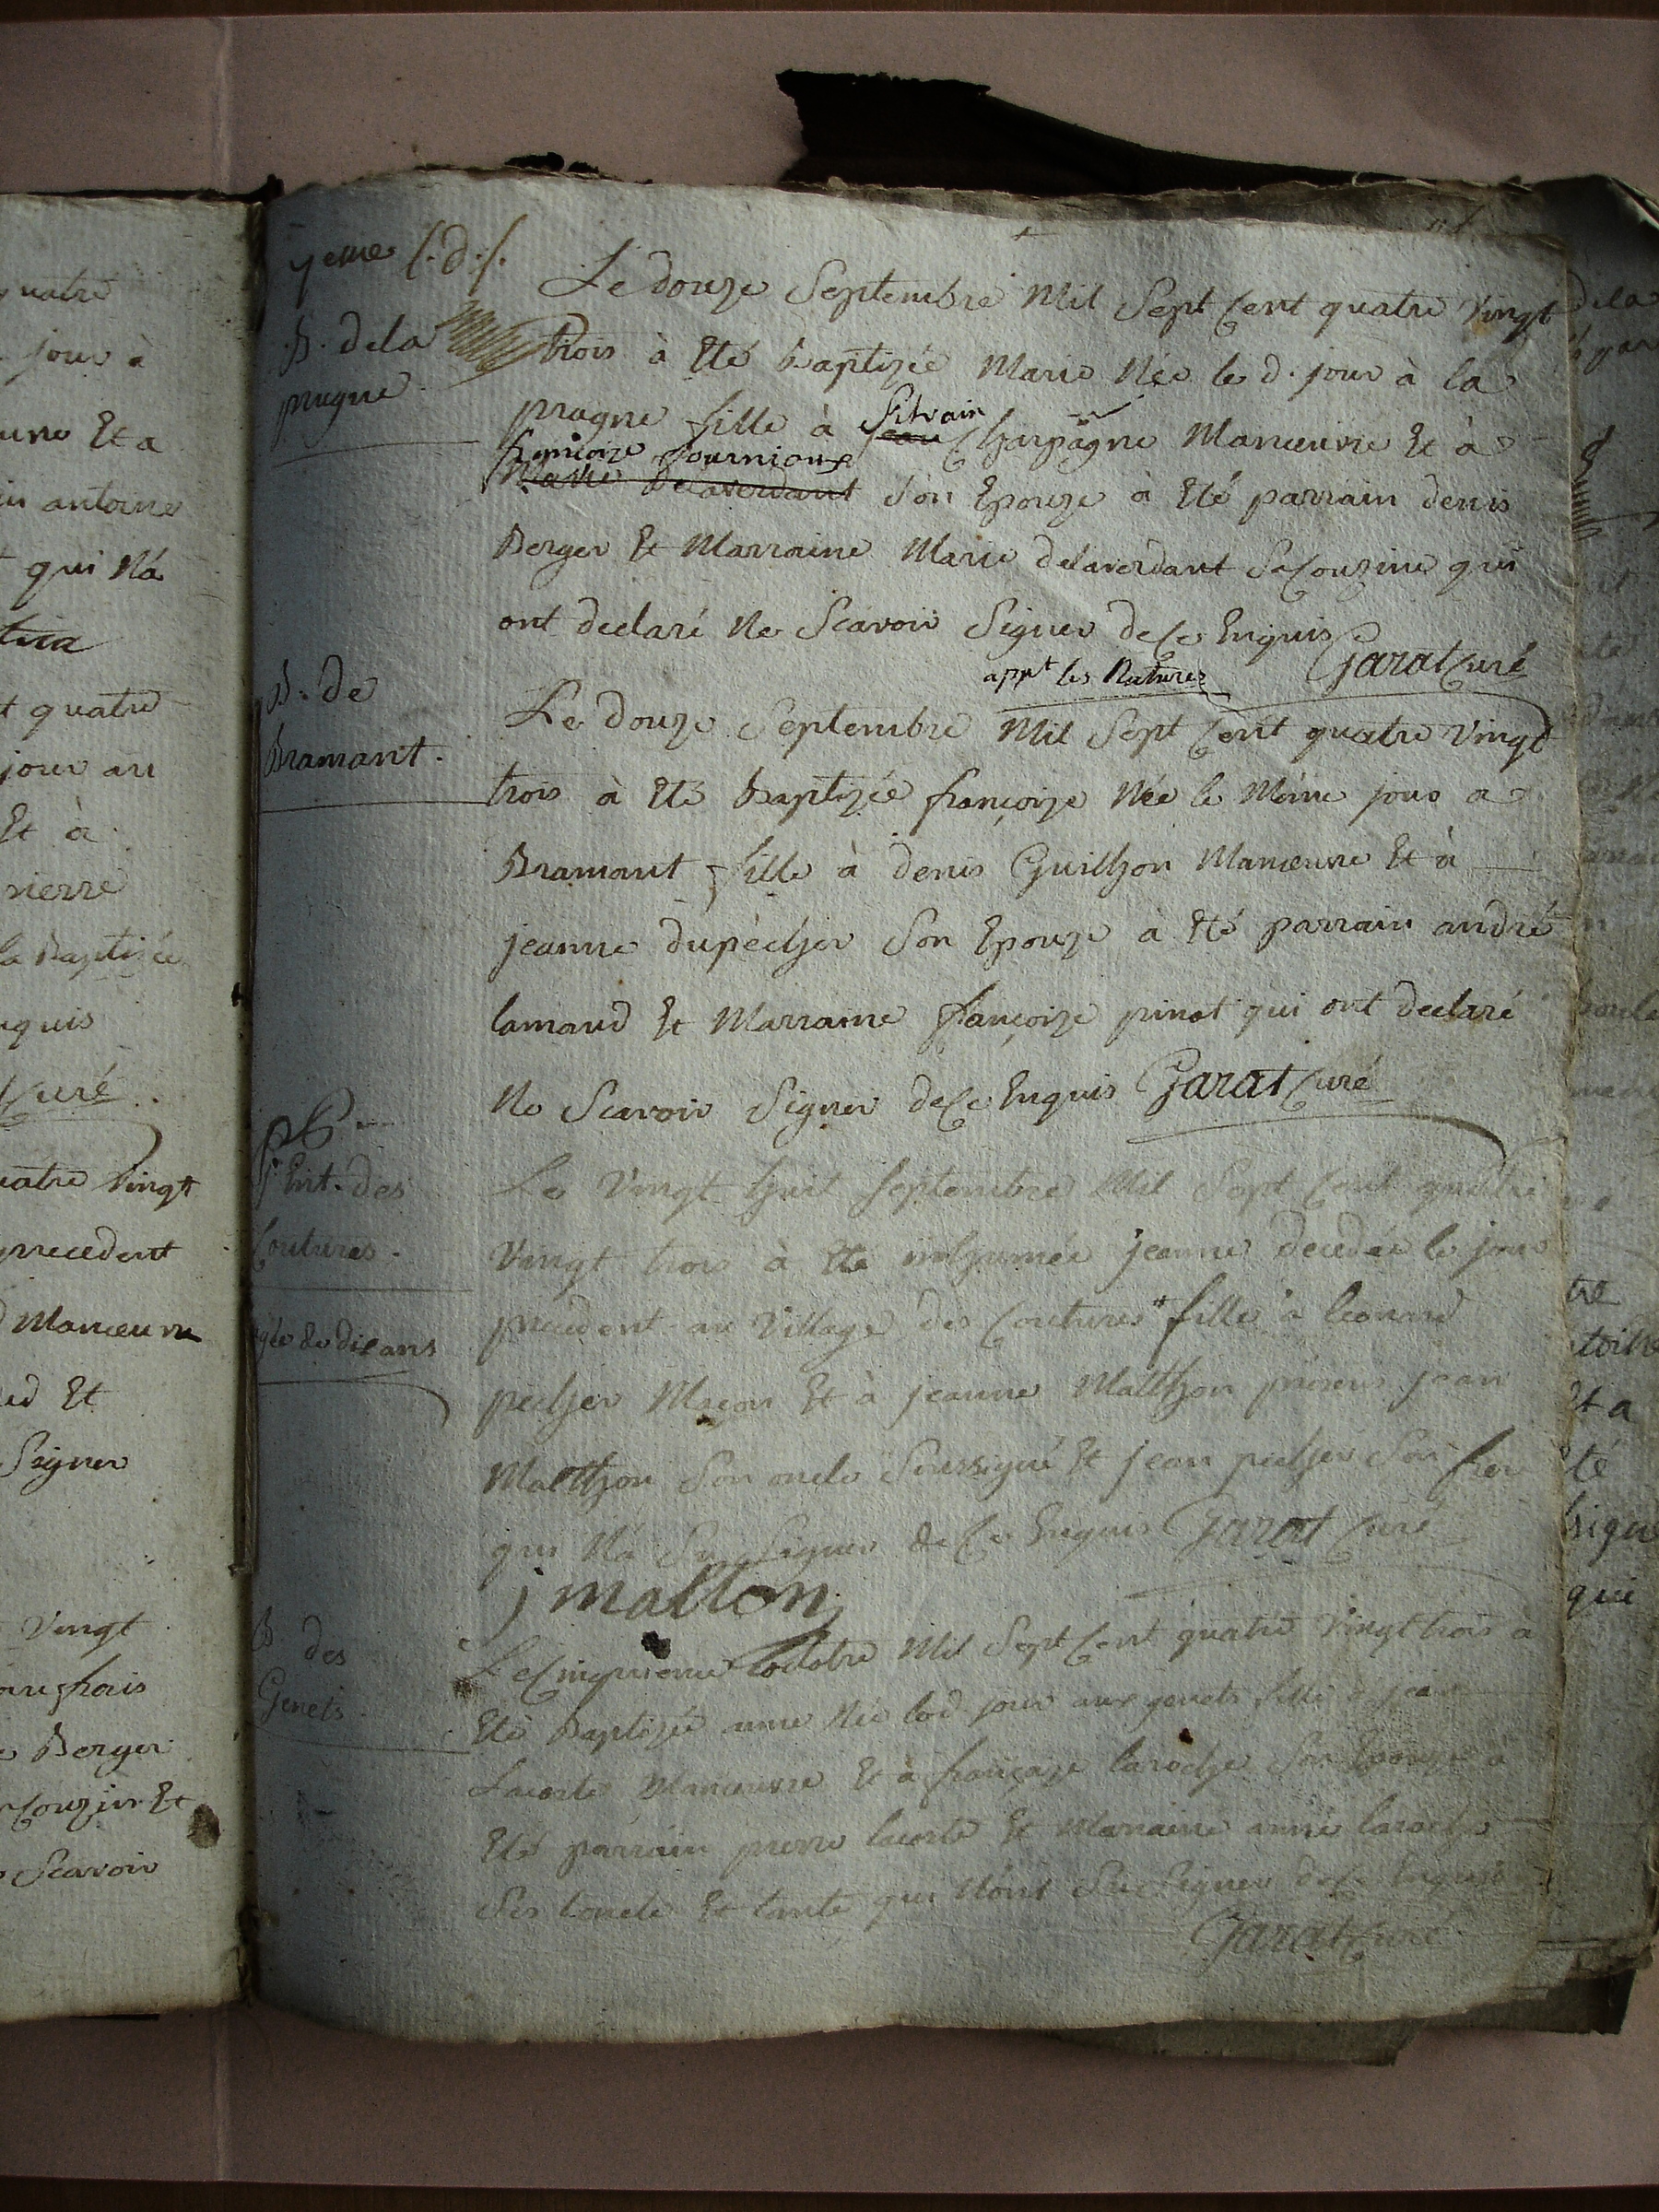 quatre
jour à
Et a
antoine
qui Na
t quatre
jour au
Et à
pierre
la Baptizée
nquis
Curé
quatre Vingt
precedent
Manœuvre
ud Et
Signer
Vingt
Berger
Couzin Et
Scavoir
B. dela
prugne
Le douze Septembre Mil Sept Cent quatre Vingt
trois à Eté Baptizée Marie Née le d. jour à la
prugne fille à jean Silvain Charpagne Manœuvre Et à
françoize fournioux
Marie Delaverdant Son Epouze à Eté parrain denis
Berger Et Marraine Marie delaverdant Sa Couzine qui
ont declaré Ne Scavoir Signer de Ce Enquis Garat Curé
appt les Ratures
B. de
Bramant.
Le douze Septembre Mil Sept Cent quatre Vingt
trois à Eté Baptizée françoize Née le Même jour a
Bramant fille à denis Guilhon Manœuvre Et à
jeanne dupècher Son Epouze à Eté parrain andré
lamaud Et Marraine françoize pinot qui ont declaré
Ne Scavoir Signer de Ce Enquis Garat Curé
Ent. des
Coutures.
Le Vingt huit Septembre Mil Sept Cent quatre
Vingt trois à Eté inhumée jeanne decedée le jour
precedent au Village des Coutures * fille à leonard
agée de dix ans
pecher Maçon Et à jeanne Malthon presens jean
Malthon Son oncle Soussigné Et jean pecher Son frer
qui Na Su Signer de Ce Enquis Garat Curé
j malton
B des
Genets.
Le Cinquieme octobre Mil Sept Cent quatre Vingt trois à
Eté Baptizée anne Née led. jour aux genets fille à jean
Lacorte Manœuvre Et à françoize laroche Son Epouze à
Eté parrain pierre lacorte Et Marraine anne laroche
Ses loncle Et tante qui Nont Su Signer de Ce Enquis
Garat Curé
dela
Et a
té
qui